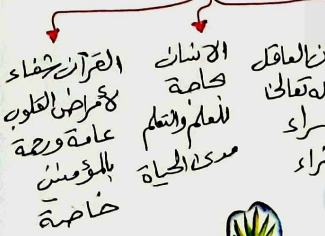 ن العاقل
له تعالى
ـراء
ـراء
الانسان
بحاجة
للعلم والتعلم
مدى الحياة
القرآن شفاء
لأمراض القلوب
عامة ورحمة
بالمؤمنين
خاصة